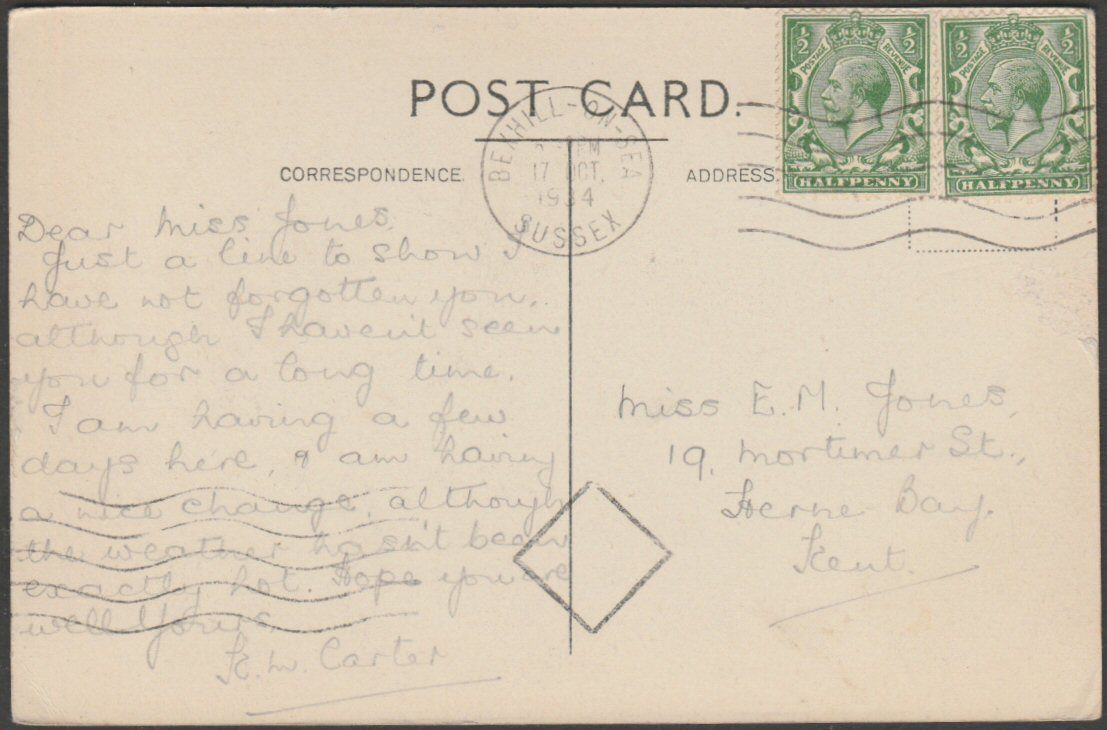 POST CARD.
CORRESPONDENCE.
ADDRESS.
BEXHILL-ON-SEA
PM
17 OCT.
1934
SUSSEX
½ POSTAGE REVENUE ½
HALFPENNY
½ POSTAGE REVENUE ½
HALFPENNY
Dear Miss Jones,
Just a line to show I
have not forgotten you,
although I haven't seen
you for a long time.
I am having a few
days here, & am having
a nice change, although
the weather hasn't been
exactly hot. Hope you are
well Yours,
K. M. Carter
Miss E. M. Jones,
19, Mortimer St.,
Herne Bay.
Kent.